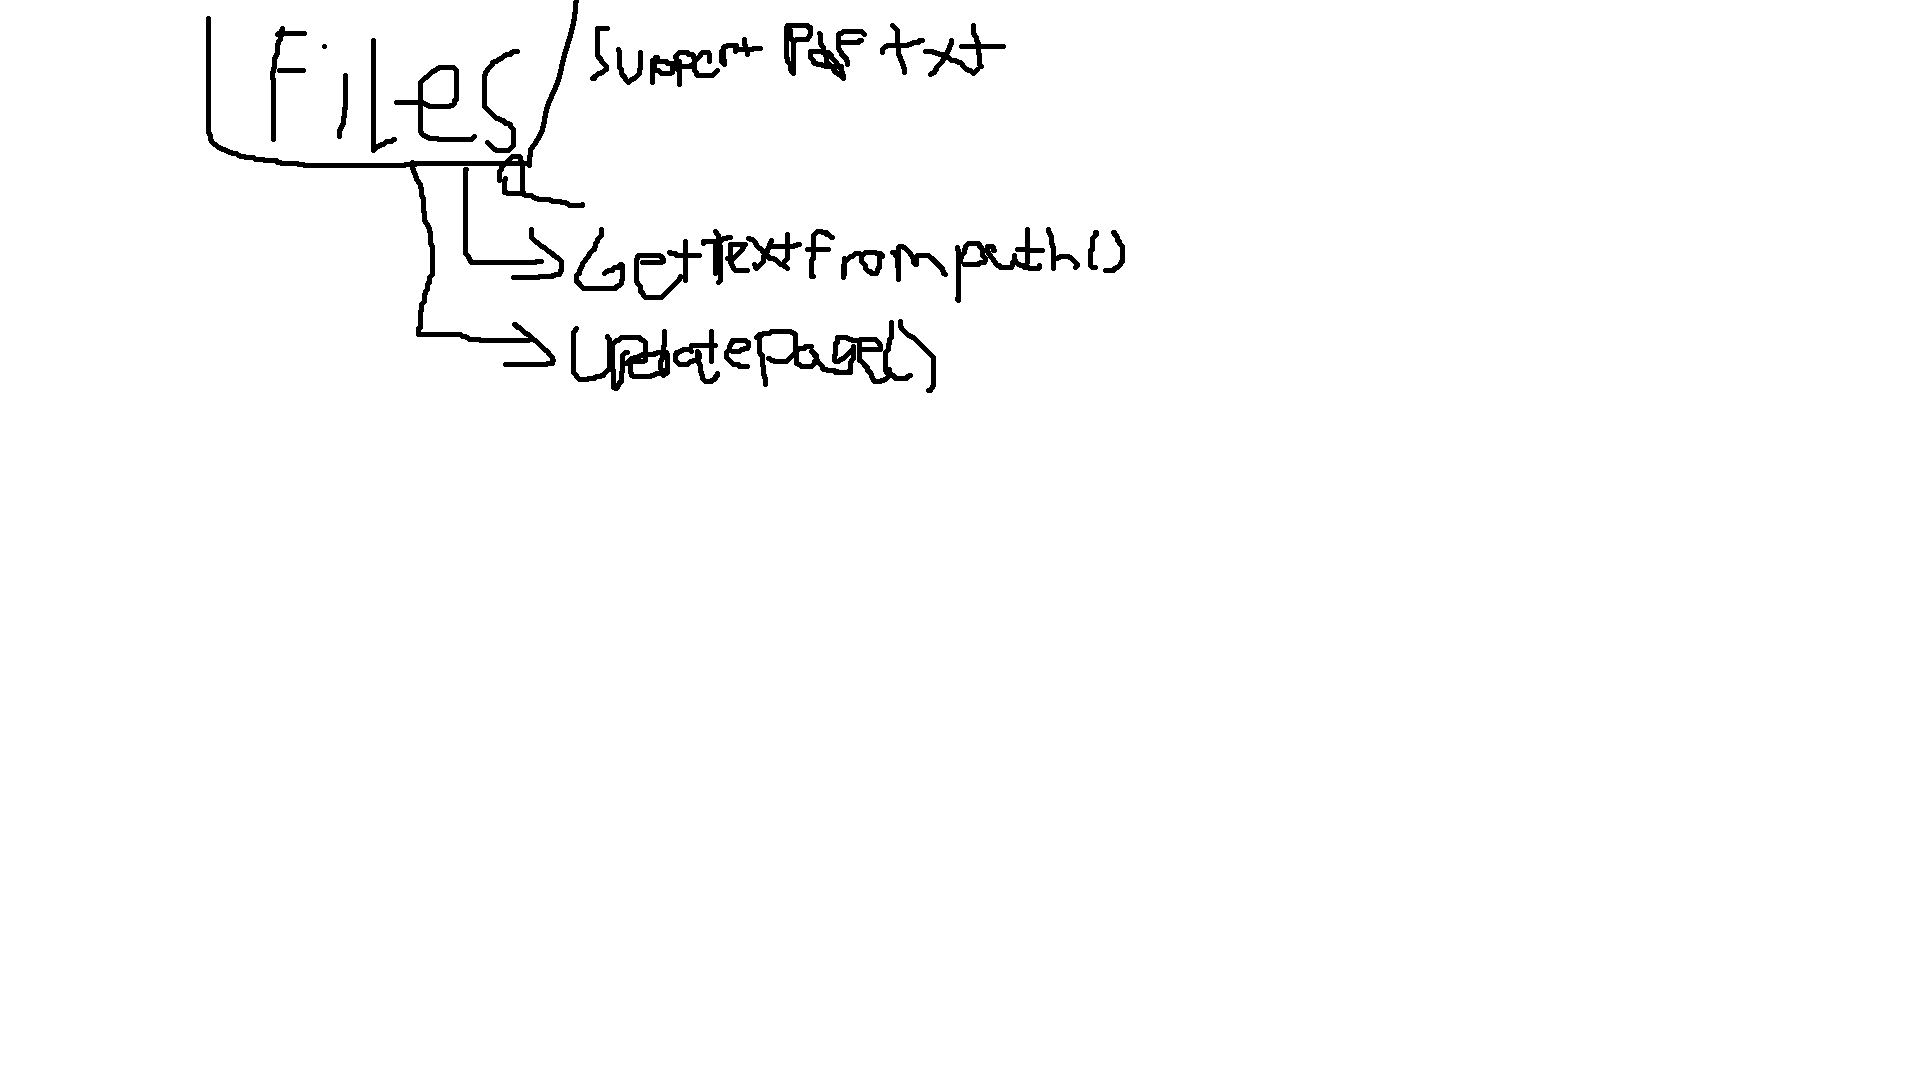 Files
Support Pdf txt
GetTextfrompath()
UpdatePage()